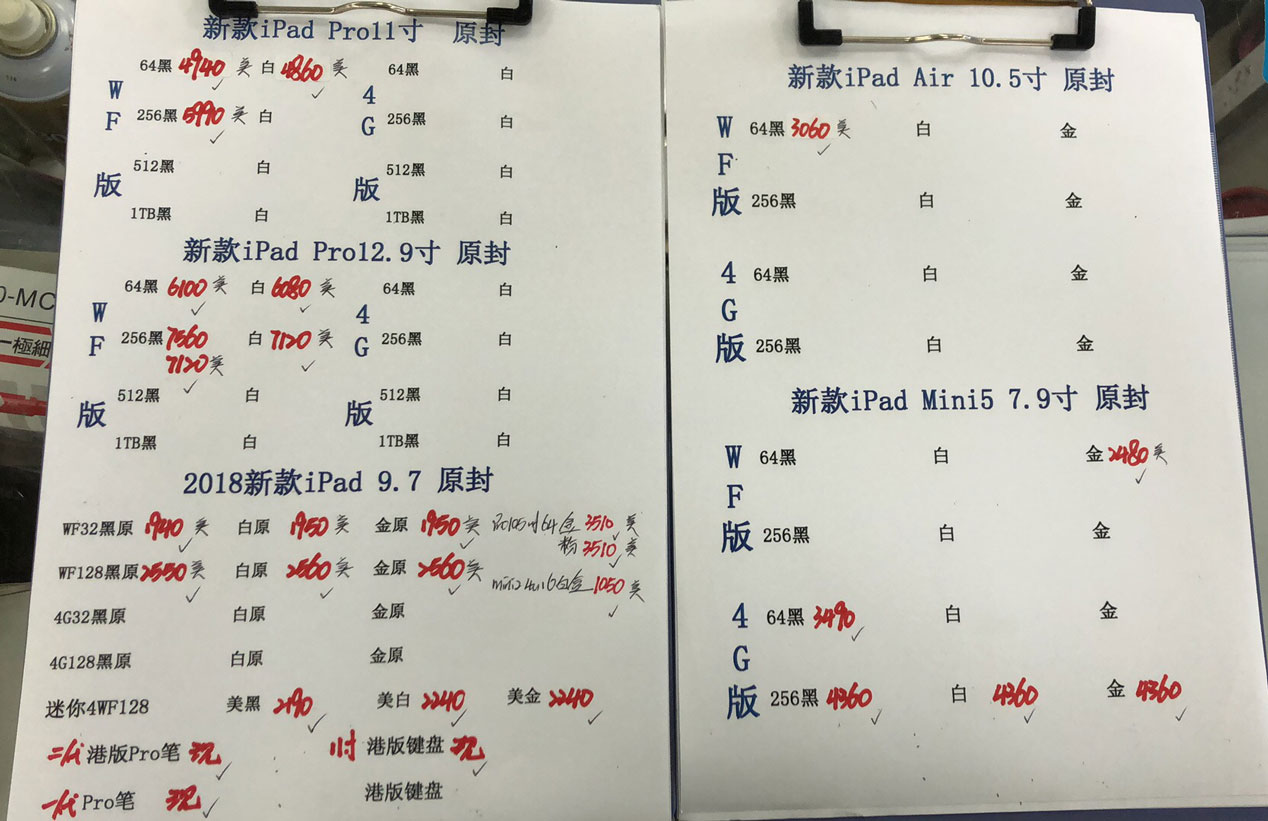 新款iPad Pro11寸 原封
64黑 4940 美 白 4860 美 64黑 白
256黑 5990 美 白 256黑 白
512黑 白 512黑 白
1TB黑 白 1TB黑 白
WF版
4G版
新款iPad Pro12.9寸 原封
64黑 6100 美 白 6080 美 64黑 白
256黑 7560 白 7120 美 256黑 白
7120 美
512黑 白 512黑 白
1TB黑 白 1TB黑 白
WF版
4G版
2018新款iPad 9.7 原封
WF32黑原 1940 美 白原 1950 美 金原 1950 美
WF128黑原 2550 美 白原 2560 美 金原 2560 美
4G32黑原 白原 金原
4G128黑原 白原 金原
迷你4WF128 美黑 2190 美白 2240 美金 2240
二代 港版Pro笔 现 11寸 港版键盘 现
一代 Pro笔 现 港版键盘
64金 3510 美
粉 3510 美
1050 美
新款iPad Air 10.5寸 原封
WF版
64黑 3060 美 白 金
256黑 白 金
4G版
64黑 白 金
256黑 白 金
新款iPad Mini5 7.9寸 原封
WF版
64黑 白 金 2480 美
256黑 白 金
4G版
64黑 3490 白 金
256黑 4360 白 4360 金 4360
0-MC
極細